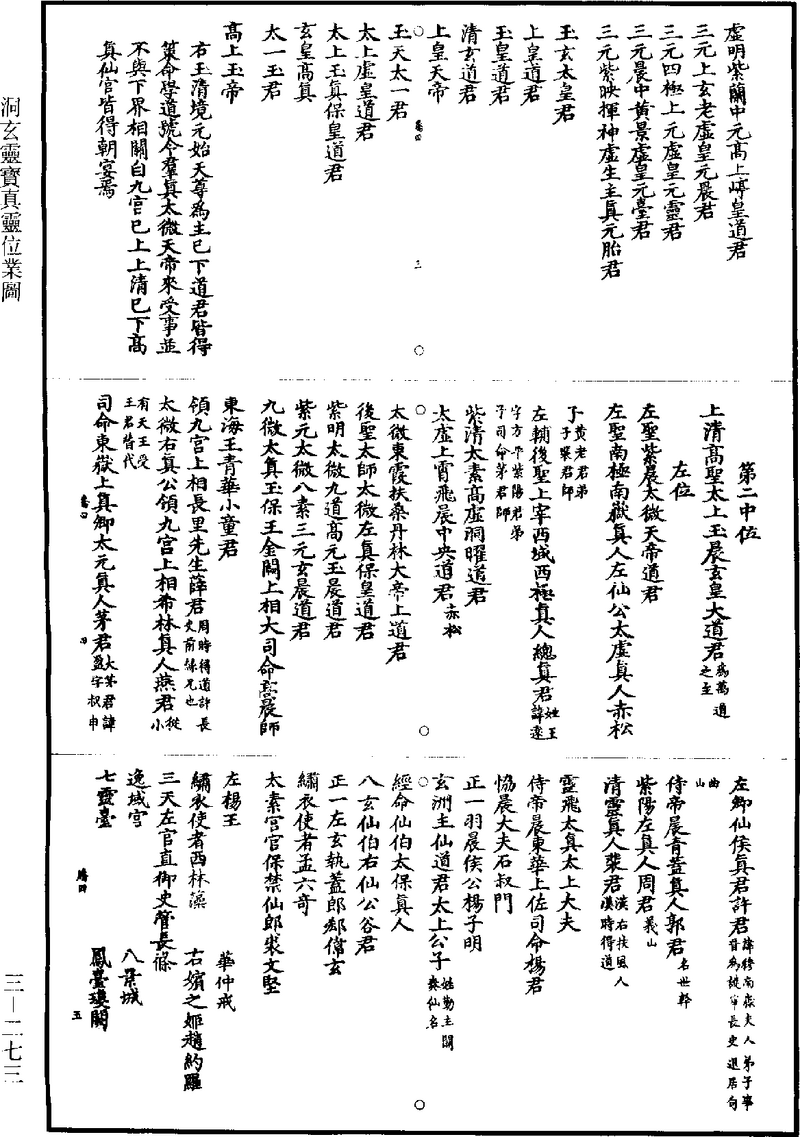 虛明紫蘭中元高上𡺚皇道君
三元上玄老虛皇元晨君
三元四極上元虛皇元靈君
三元晨中黃景虛皇元臺君
三元紫映揮神虛生主真元胎君
玉玄太皇君
上皇道君
玉皇道君
清玄道君
上皇天帝
玉天太一君
太上虛皇道君
太上玉真保皇道君
玄皇高真
太一玉君
高上玉帝
右玉清境元始天尊為主已下道君皆得
策命學道號令羣真太微天帝來受事並
不與下界相關自九宮已上上清已下高
真仙官皆得朝宴焉
第二中位
上清高聖太上玉晨玄皇大道君為萬道之主
左位
左聖紫晨太微天帝道君
左聖南極南嶽真人左仙公太虛真人赤松
子黃老君弟子裴君師
左輔後聖上宰西城西極真人總真君姓王諱遠
字方平紫陽君弟子司命茅君師
紫清太素高虛洞曜道君
太虛上霄飛晨中央道君赤松
太微東霞扶桑丹林大帝上道君
後聖太師太微左真保皇道君
紫明太微九道高元玉晨道君
紫元太微八素三元玄晨道君
九微太真玉保王金闕上相大司命高晨師
東海王青華小童君
領九宮上相長里先生薛君周時得道許長史前緣兄也
太微右真公領九宮上相希林真人燕君從小
有天王受王君替代
司命東嶽上真卿太元真人茅君大茅君諱盈字叔申
左卿仙侯真君許君諱穆南嶽夫人弟子事晉為護軍長史退居句
曲山
侍帝晨青蓋真人郭君名世幹
紫陽左真人周君義山
清靈真人裴君漢右扶風人漢時得道
靈飛太真太上大夫
侍帝晨東華上佐司命楊君
協晨大夫石叔門
正一羽晨侯公楊子明
玄洲主仙道君太上公子姓勤主關奏仙名
經命仙伯太保真人
八玄仙伯右仙公谷君
正一左玄執蓋郎郄偉玄
繡衣使者孟六奇
太素宮官保禁仙郎裘文堅
左楊王　華仲戒
繡衣使者西林藻　右嬪之姬趙約羅
三天左官直御史管長條
逸域宮　八景城
七靈臺　鳳臺瓊闕
洞玄靈寶真靈位業圖
三－二七三